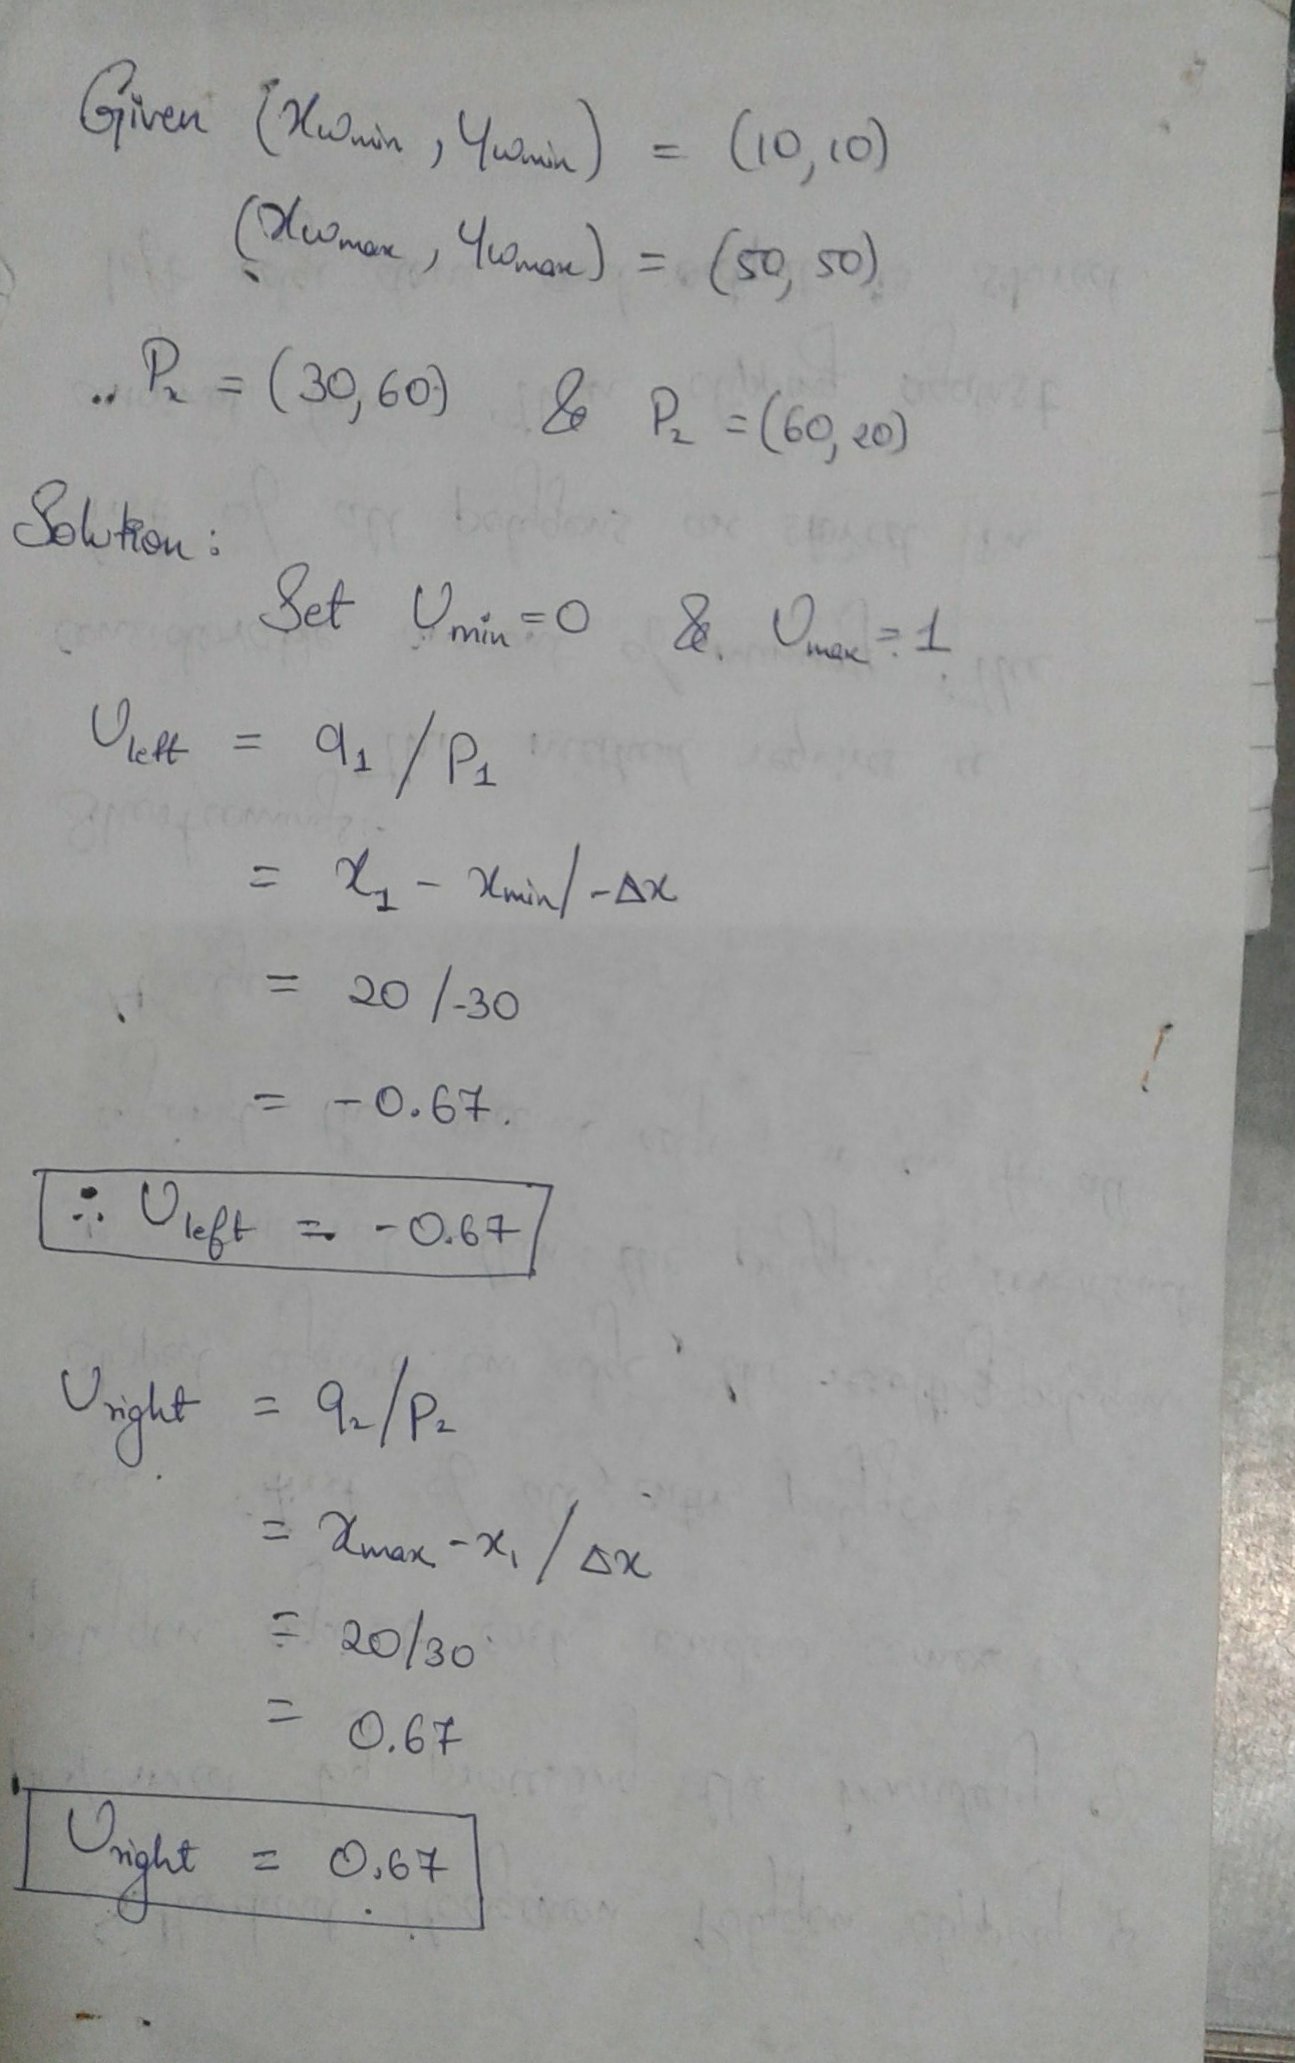 Given (xwmin, ywmin) = (10,10)
(xwmax, ywmax) = (50, 50)
P₂ = (30,60) & P₂ = (60,20)
Solution:
Set Umin = 0 & Umax = 1
Uleft = q₁/P₁
= x₁ - xmin/-Δx
= 20/-30
= -0.67.
∴ Uleft = -0.67
Uright = q₂/P₂
= xmax - x₁/Δx
= 20/30
= 0.67
Uright = 0.67